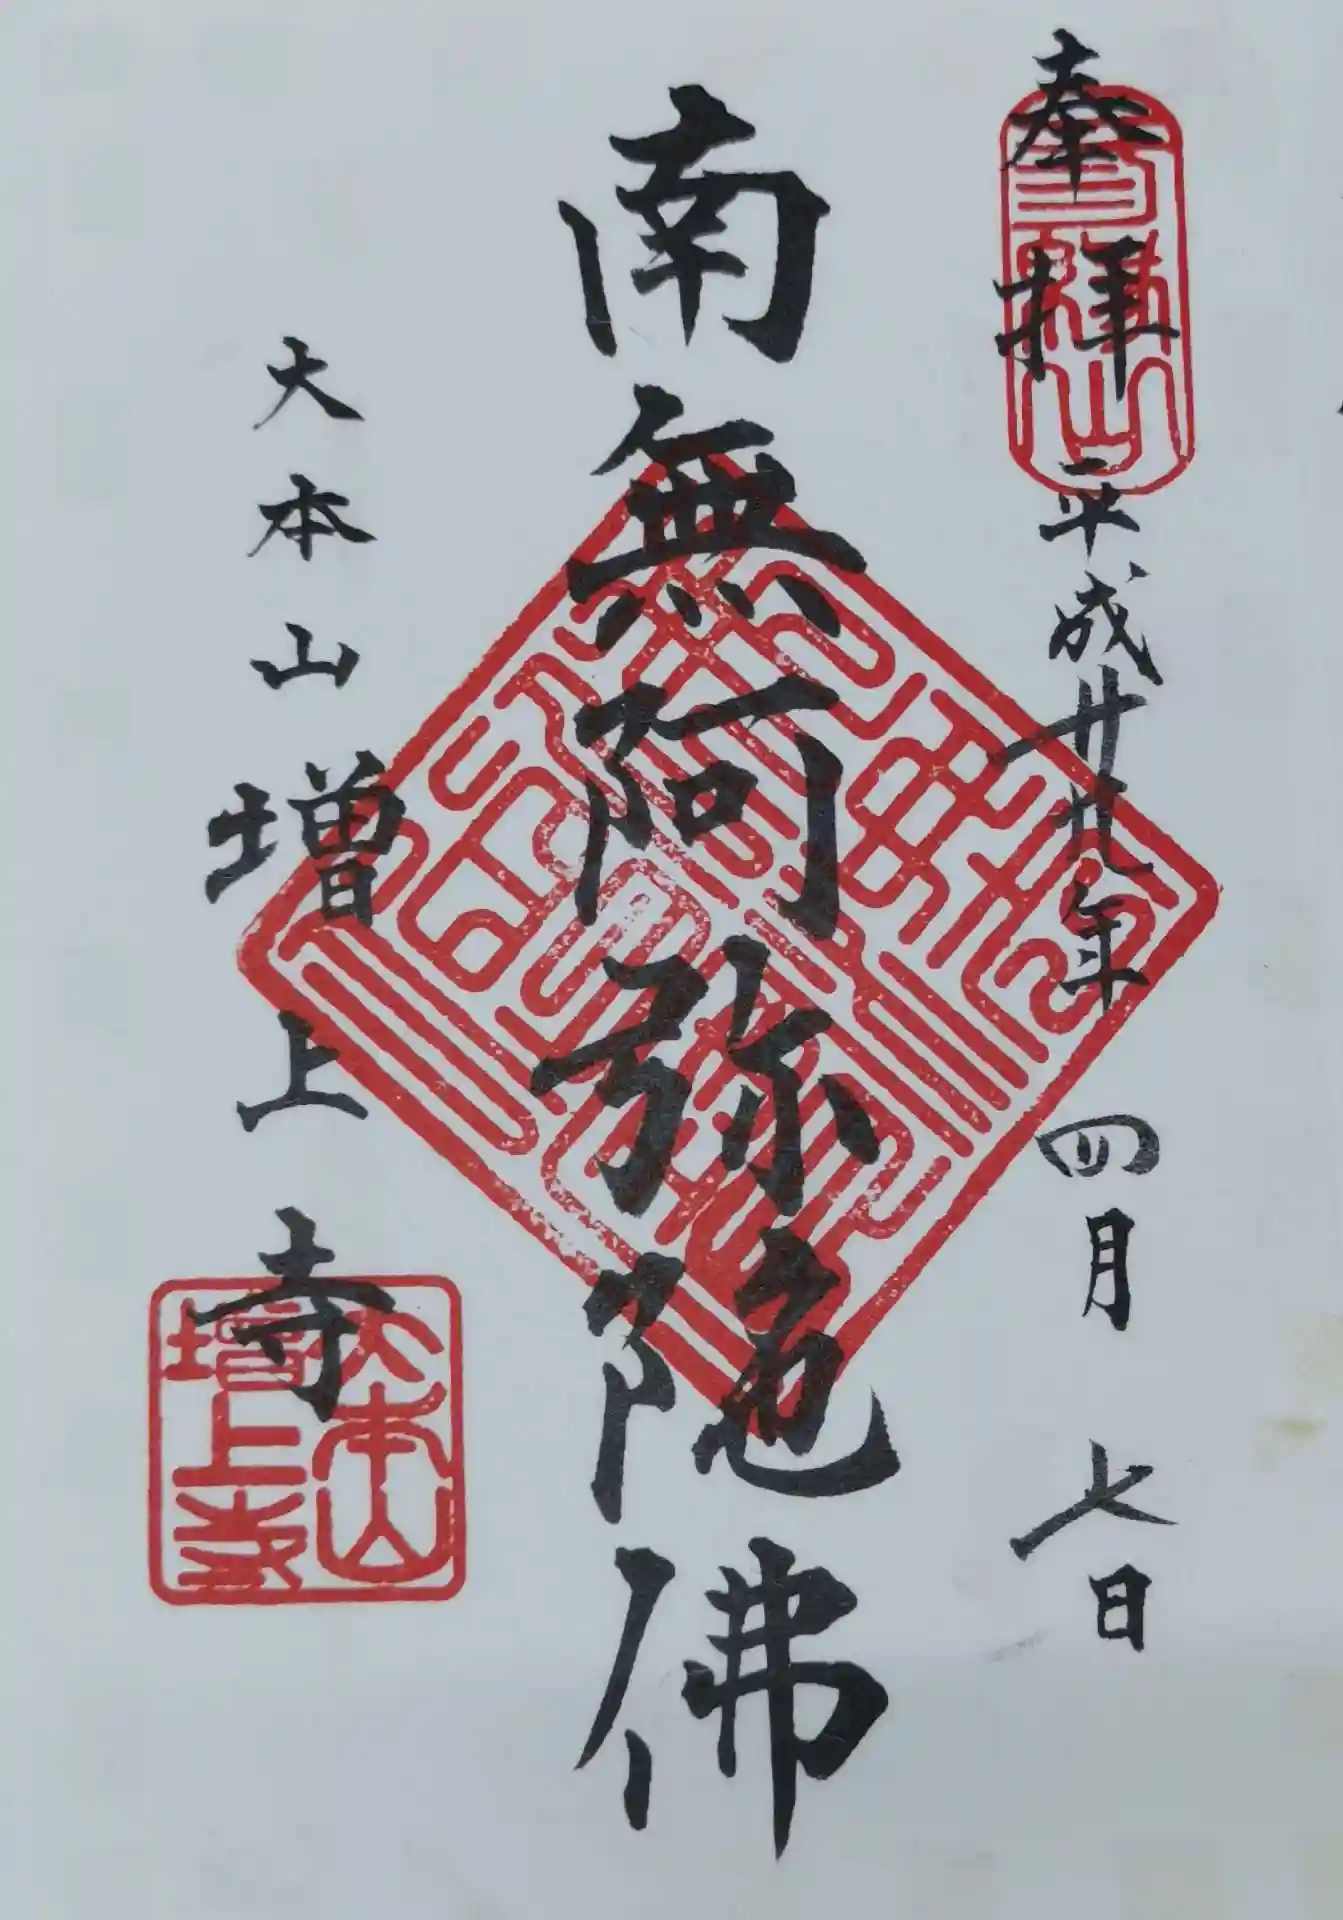 奉拝
平成廿九年 四月 七日
南無阿弥陀佛
大本山 増上寺
三縁山
大本山
増上寺